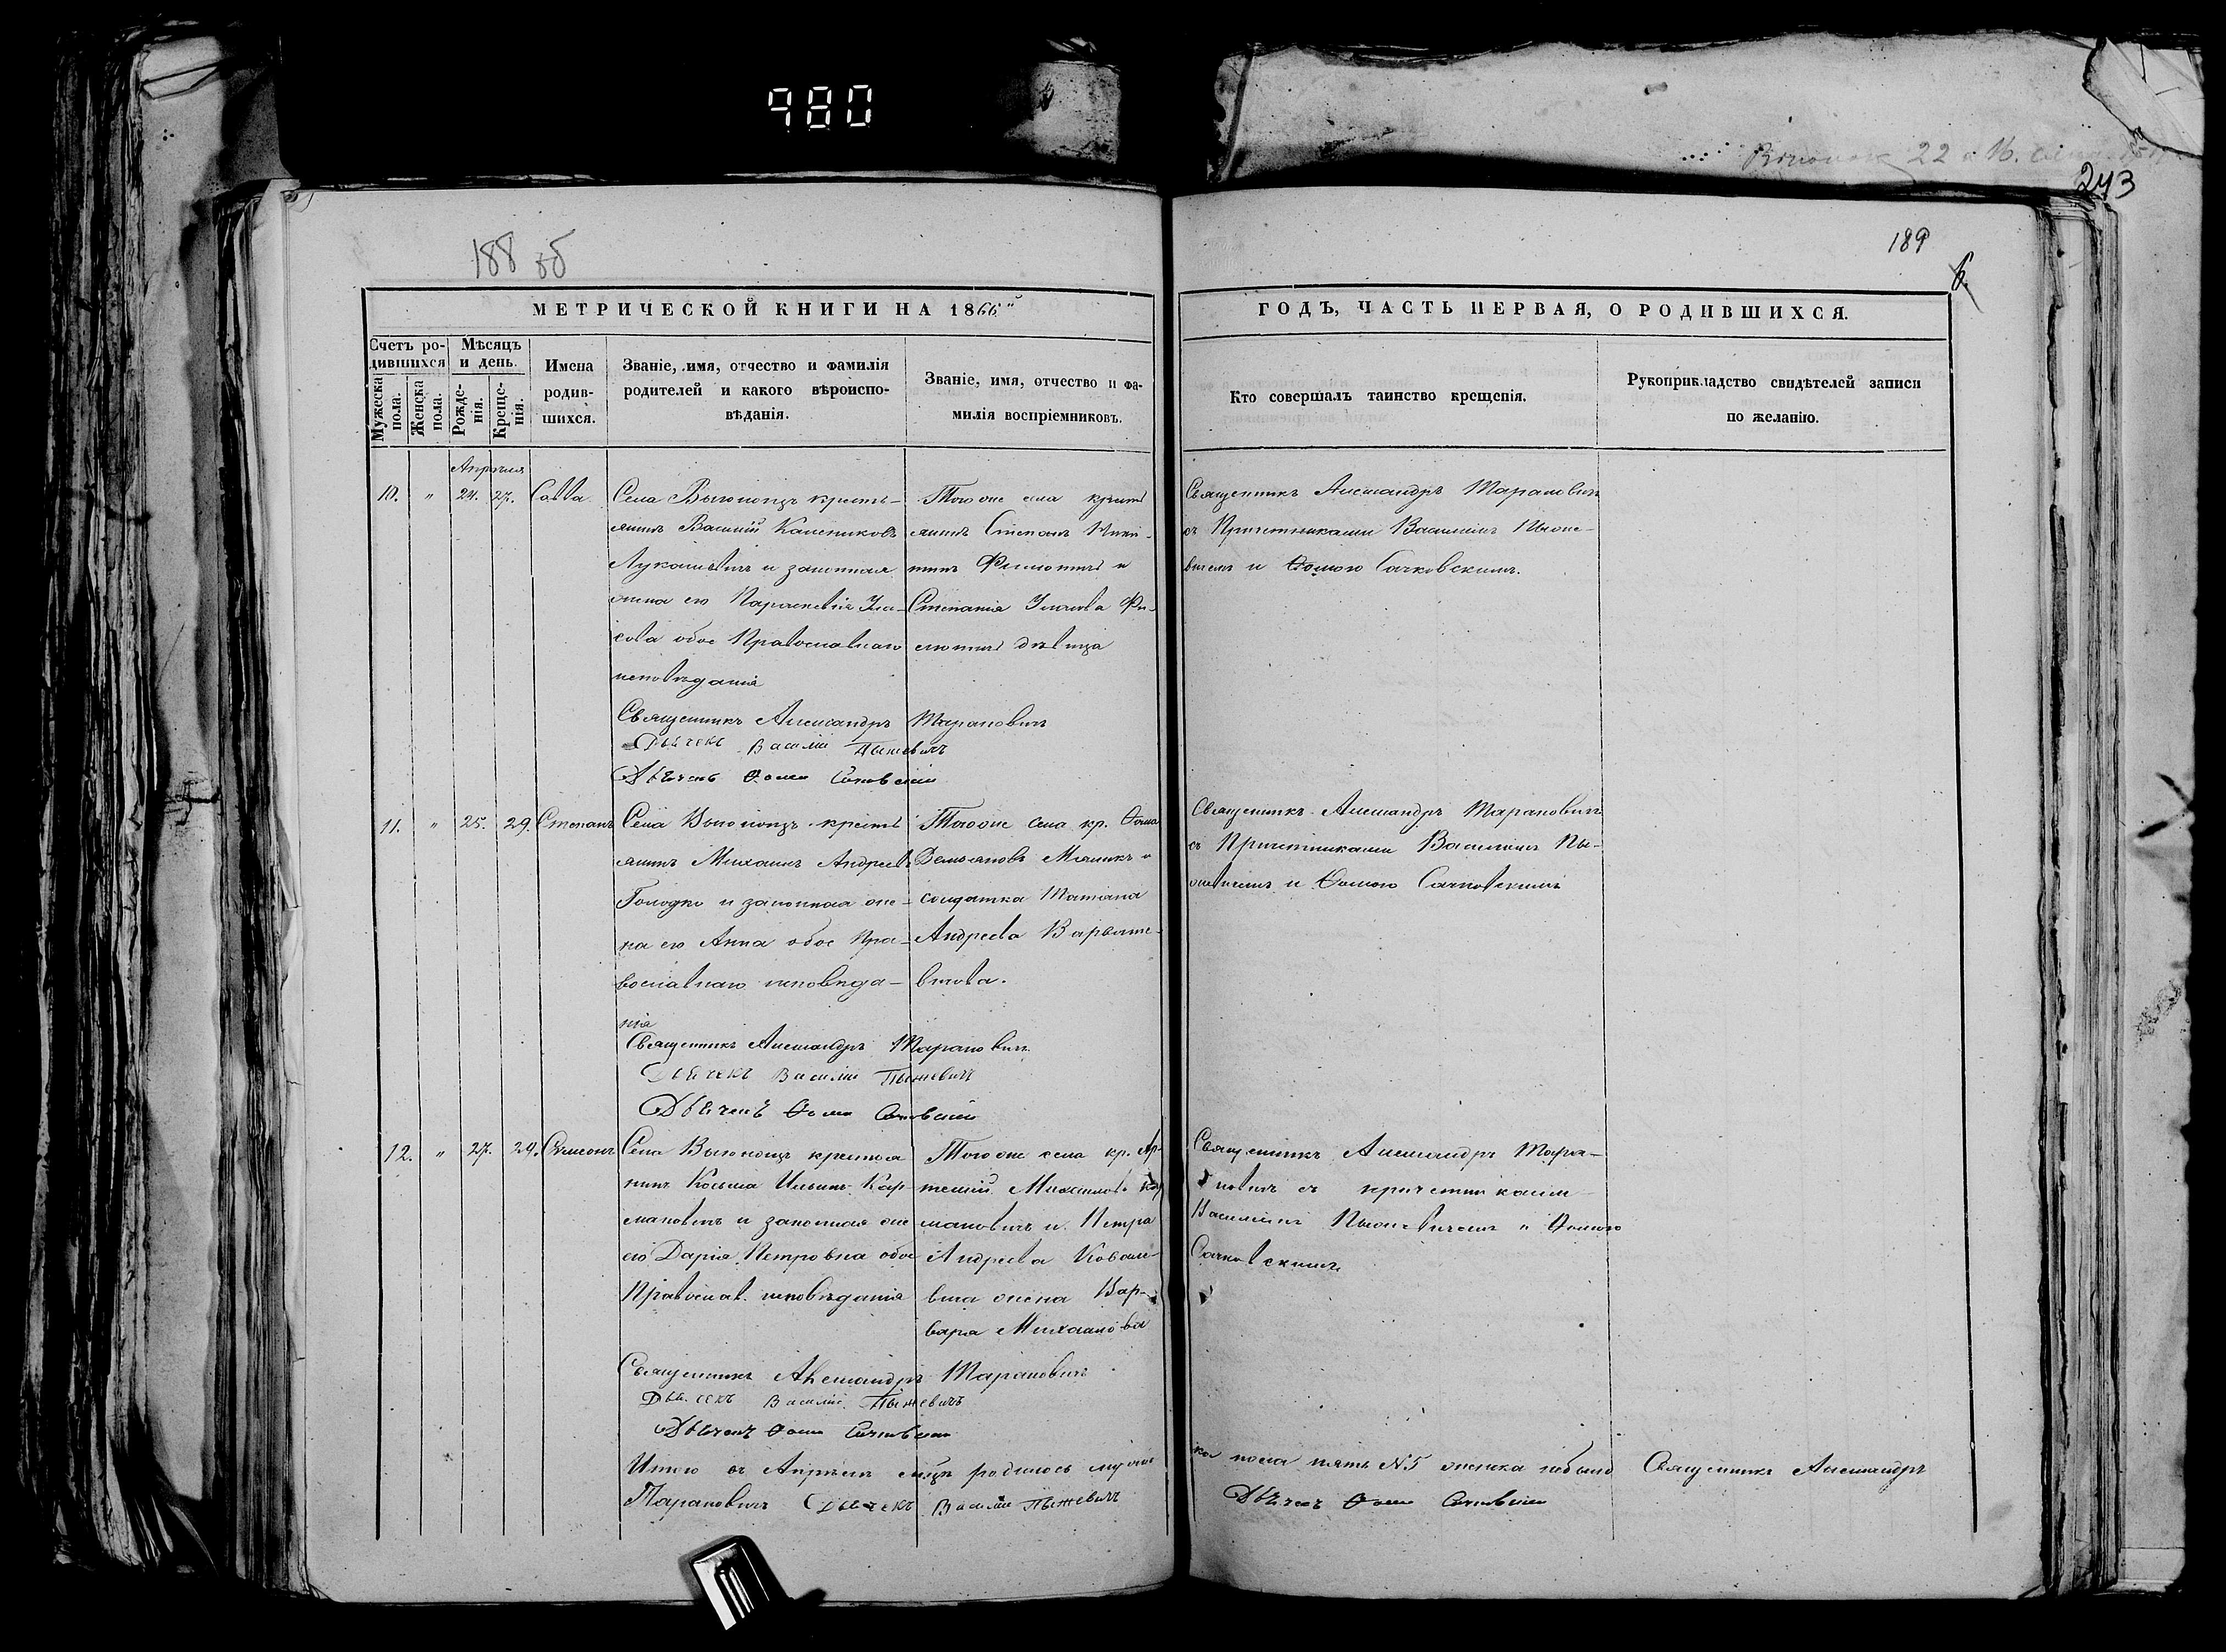 980
243
188 об
189
МЕТРИЧЕСКОЙ КНИГИ НА 1866й
ГОДЪ, ЧАСТЬ ПЕРВАЯ, О РОДИВШИХСЯ.
Счетъ родившихся
Мужеска пола.
Женска пола.
Мѣсяцъ и день.
Рожденія.
Крещенія.
Имена родившихся.
Званіе, имя, отчество и фамилія
родителей и какого вѣроиспо-
вѣданія.
Званіе, имя, отчество и фа-
милія воспріемниковъ.
Кто совершалъ таинство крещенія.
Рукоприкладство свидѣтелей записи
по желанію.
Апрѣля
10. " 24. 27. Савва
Села крестъ-
янинъ Василій
и законная
жена его Параскевія
обое Православнаго
исповѣданія
Тогоже села крестъ
янинъ Степанъ Ники-
тинъ и
Степанія
дѣвица
Священникъ Александръ Тарановичъ
съ Причетниками Василіемъ Пыже-
вичемъ и Ѳомою Сачковскимъ.
Священникъ Александръ Тарановичъ
Дьячекъ Василій Пыжевичъ
Дьячекъ Ѳома Сачковскій
11. " 25. 29. Степанъ
Села крестъ
янинъ Михаилъ Андреевъ
Голодко и законная же-
на его Анна обое Пра-
вославнаго исповѣда-
нія
Тогоже села кр. Ѳома
Демьяновъ и
солдатка Татіана
Андреева
Священникъ Александръ Тарановичъ
съ Причетниками Василіемъ Пы-
жевичемъ и Ѳомою Сачковскимъ
Священникъ Александръ Тарановичъ
Дьячекъ Василій Пыжевичъ
Дьячекъ Ѳома Сачковскій
12. " 27. 29. Сѵмеонъ
Села крестья
нинъ Косьма Ильинъ Кар-
мановичъ и законная же
его Дарія Петровна обое
Православ. исповѣданія
Тогоже села кр. Ар-
темій Михаиловъ Кар
мановичъ и Петра
Андреева Ковале-
вича жена Вар-
вара Михаилова
Священникъ Александръ Тара-
новичъ съ причетниками
Василіемъ Пыжевичемъ и Ѳомою
Сачковскимъ
Священникъ Александръ Тарановичъ
Дьячекъ Василій Пыжевичъ
Дьячекъ Ѳома Сачковскій
Итого въ Апрѣлѣ мцѣ родилось мужес
ка пола пять №5 женска небыло Священникъ Александръ
Тарановичъ Дьячекъ Василій Пыжевичъ
Дьячекъ Ѳома Сачковскій